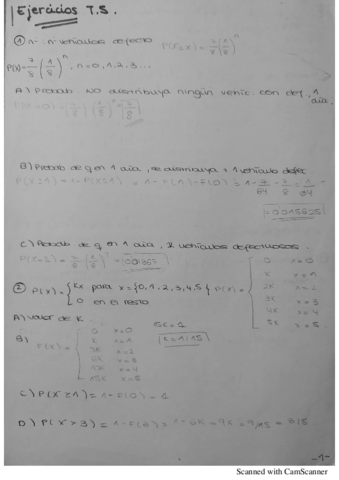 Ejercicios T.5.
① n- n vehículos defecto P(X=x) = 7/8 (1/8)^n
P(x) = 7/8 (1/8)^n, n=0,1,2,3...
A) Probab NO distribuya ningún vehic. con def, 1 día.
P(X=0) = (7/8) (1/8)^0 = (7/8)
B) Probab de q en 1 día, se distribuya +1 vehículo defec
P(X>1) = 1-P(X≤1) = 1-F(1)-F(0) = 1- 7/64 - 7/8 = 1/64
0'015625
C) Probab de q en 1 día, 2 vehículos defectuosos.
② P(x) = { Kx para x={0,1,2,3,4,5} P(x) =
0 en el resto
0 x=0
K x=1
2K x=2
3K x=3
4K x=4
5K x=5
A) valor de K.
B) P(x) =
0 x=0
K x=1
3K x=2
6K x=3
x=4
15K x=5
K=1/15
C) P(X≥1) = 1-F(0) =
D) P(X>3) = 1-F(3) = 1-6K = 9K = 9/15 =
-1-
Scanned with CamScanner